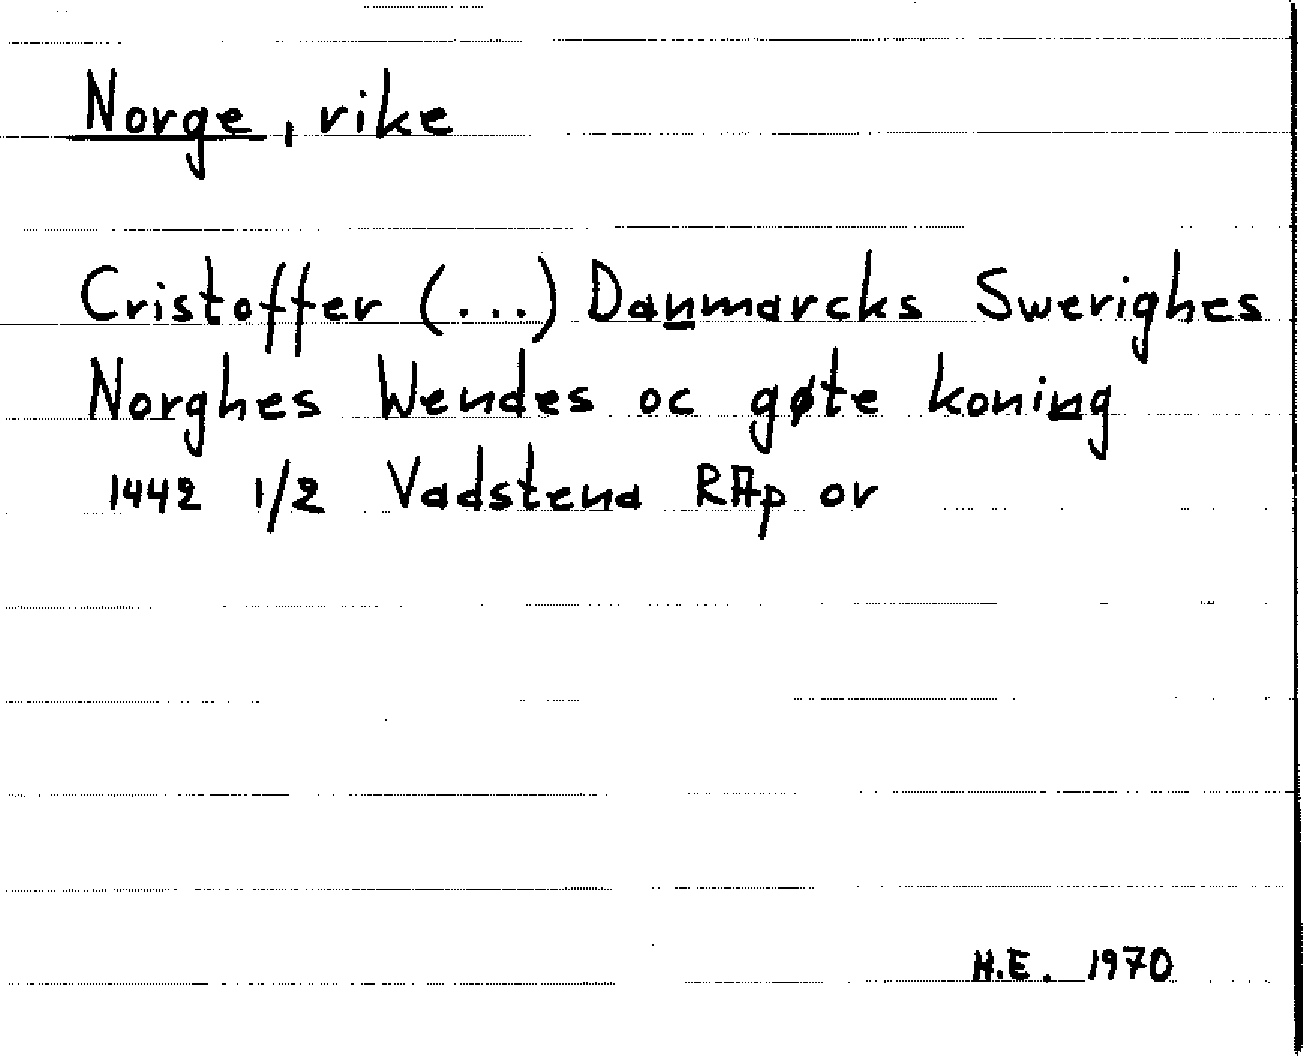 Norge, rike
Cristoffer (...) Danmarcks Swerighes
Norghes Wendes oc gøte koning
1442 1/2 Vadstena RAp or
H.E. 1970